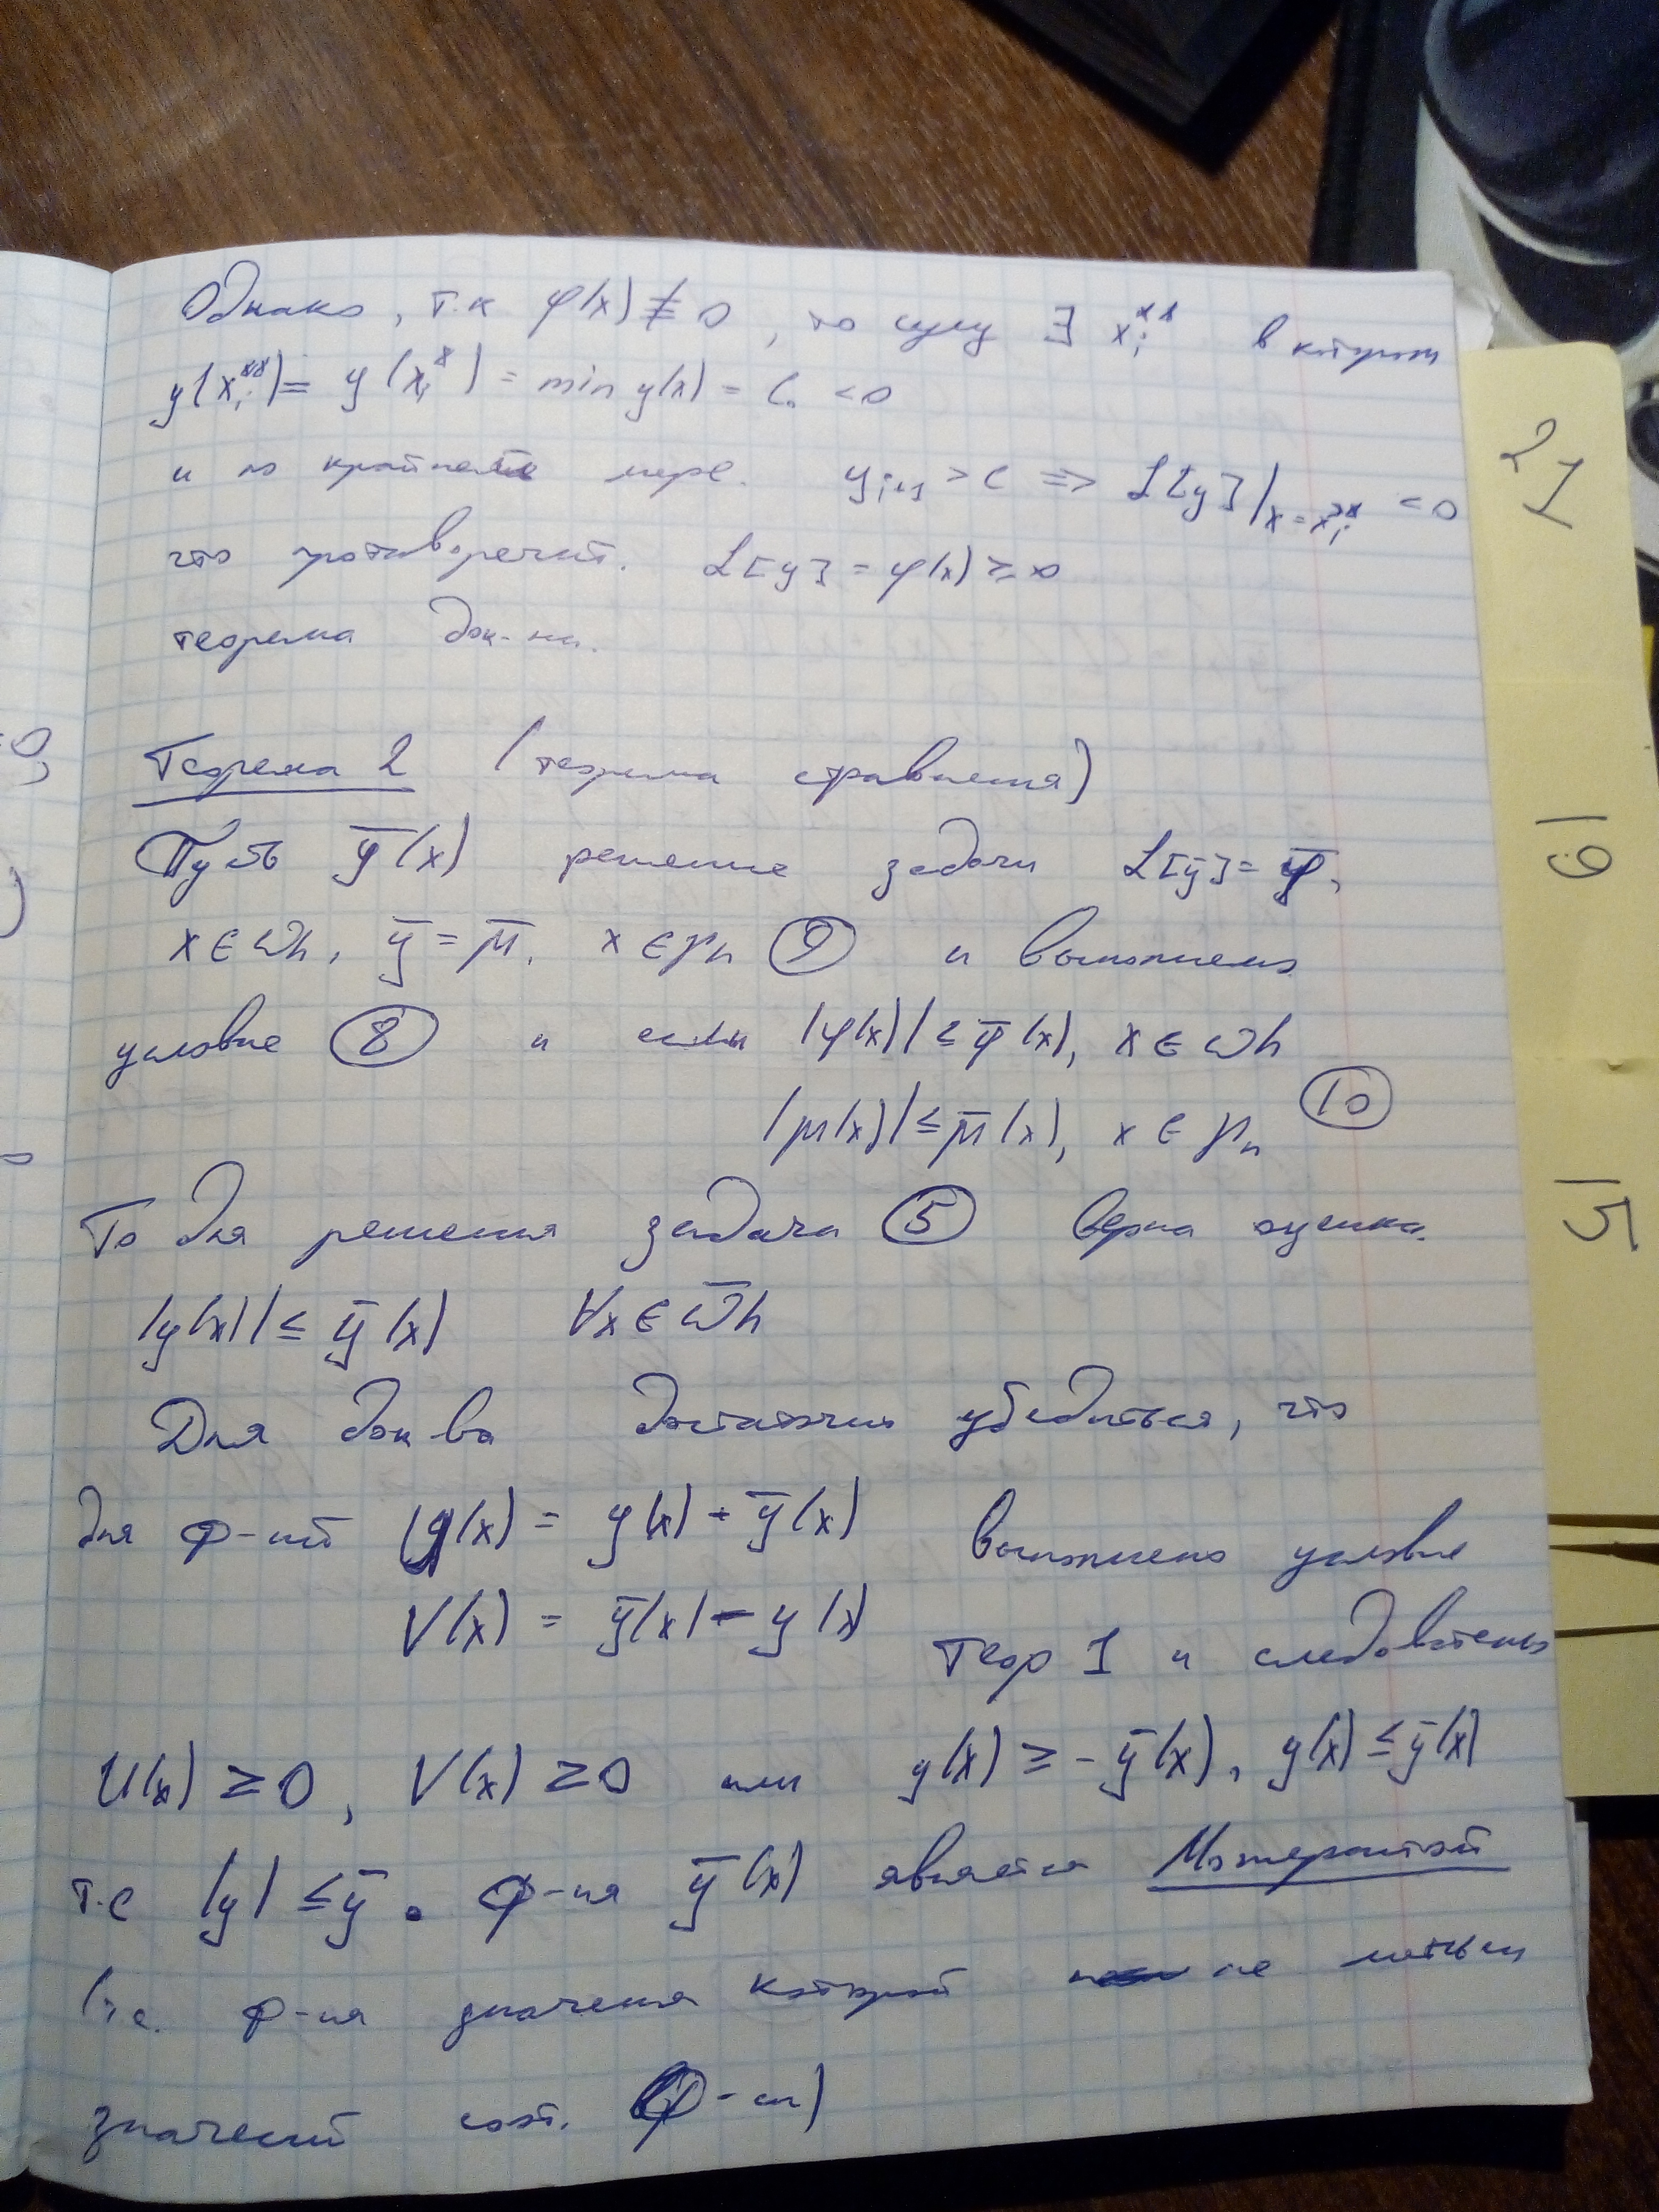 Однако, т.к φ(x) ≢ 0, то сущ ∃ xᵢ** в котором
y(xᵢ**) = y(xᵢ*) = min y(x) = C₀ < 0
и по крайней мере. yᵢ₊₁ > C ⇒ L[y]|x=xᵢ** < 0
что противоречит. L[y] = φ(x) ≥ 0
теорема док-на.
Теорема 2 (теорема сравнения)
Пусть ȳ(x) решение задачи L[ȳ] = φ̄,
x ∈ ωh, ȳ = μ̄, x ∈ γn (9) и выполнено
условие (8) и если |φ(x)| ≤ φ̄(x), x ∈ ωh
|μ(x)| ≤ μ̄(x), x ∈ γn (10)
То для решения задачи (5) верна оценка.
|y(x)| ≤ ȳ(x) ∀x ∈ ω̄h
Для док ва достаточно убедиться, что
для ф-ий (x) = y(x) + ȳ(x) выполнено условие
V(x) = ȳ(x) - y(x) теор 1 и следовательно
U(x) ≥ 0, V(x) ≥ 0 или y(x) ≥ -ȳ(x), y(x) ≤ ȳ(x)
т.е |y| ≤ ȳ. Ф-ия ȳ(x) является Мажорантой
(т.е. ф-ия значения которой не
значений ф-ии)
21
19
15